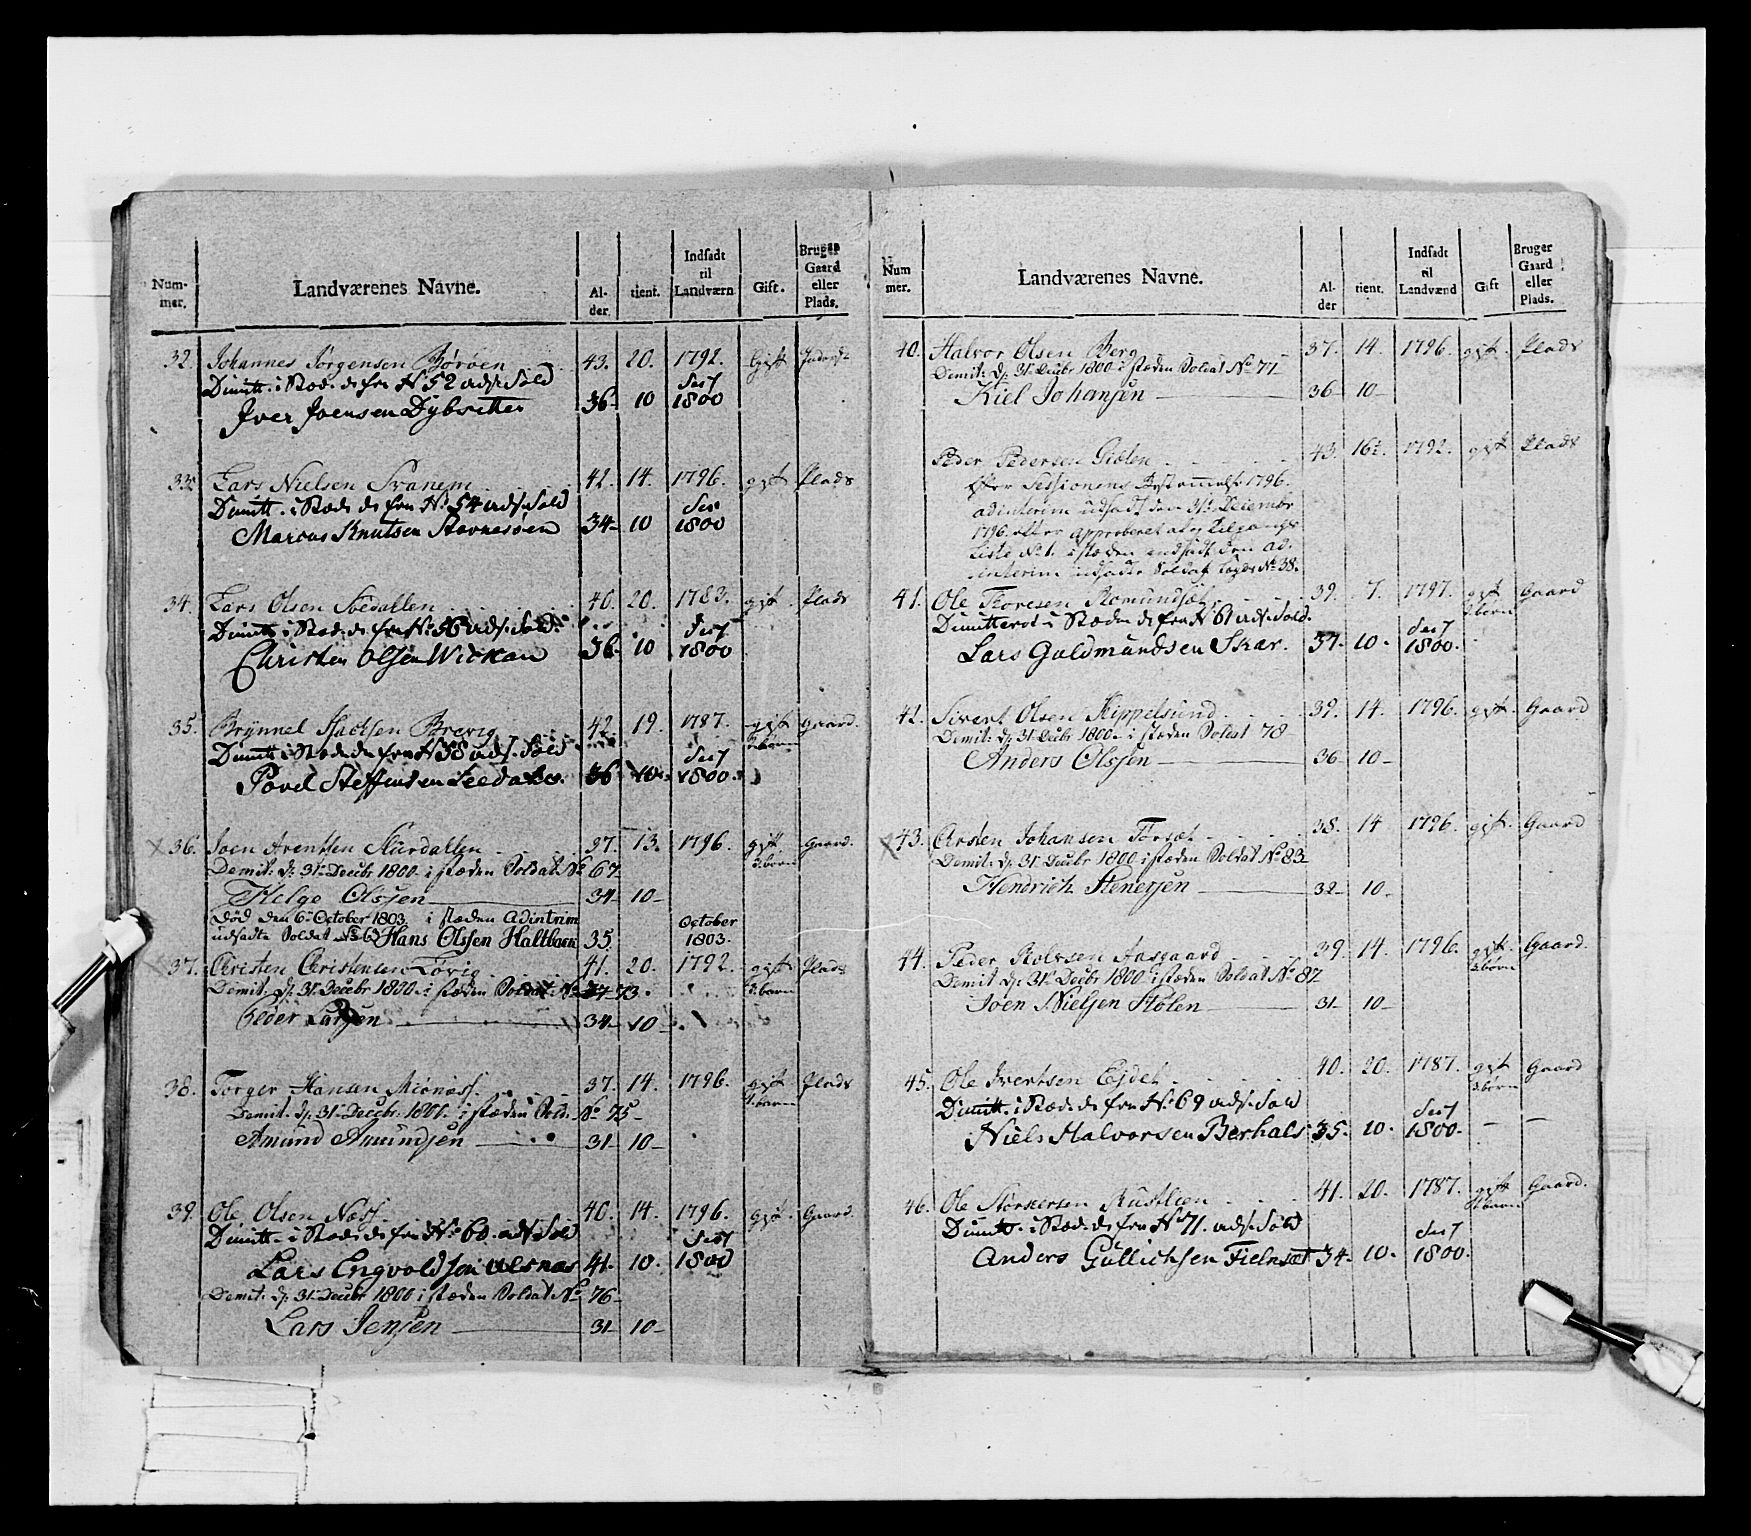 Num-
mer.
Landværenes Navne.
Al-
der.
tient.
Indsadt
til
Landværn
Gift.
Bruger
Gaard
eller
Plads.
32. Johannes Jørgensen Børøen 43. 20. 1792. Ugift
Dimitt. i Stæd. d: fra N 52 uds. Sold Sest
Iver Joensen Dybsetter 36- 10 1800
33. Lars Nielsen Svanem 42. 14. 1796. gift Plads
Dimitt. i Stæd. d: fra N: 54 uds: Sold Ses
Marcus Knutsen Stavnesøen 34- 10 1800
34. Lars Olsen Soedallen 40. 20. 1783. gift. Plads
Dimitt. i Stæd: d: fra N: 56 uds: Sold: Sest
Christen Olsen Wickan 36- 10 1800
35. Brynnel Brevig 42. 19. 1787. gift Gaard.
Dimitt. i Stæd: d: fra N 58 uds: Sold Sest 3. børn
Povel Steffensen 36 10. 1800.
36. Joen Arentsen Skurdallen 37. 13. 1796. gift. Gaard.
Demit: d: 31 Decbr 1800 - i stæden Soldat No 67 3. børn
Helge Olssen 34- 10-
Død den 6 October 1803. i stæden Adintrim October
udsadte Soldat Hans Olssen Haltbaen 35. 1803.
37. Christen Christensen Løvig 41. 20. 1792. gift Plads
Demit: d: 31 Decbr 1800. i stæden Soldat: No 73. barn
Peder Larsen 34- 10-
38. Torger Hansen 37. 14. 1796. gift Plads
Demit. d: 31 Decbr: 1800. i stæden Sold. No 75- 1. barn
Amund Amundsen 31 10-
39. Ole Olsen Næss 40. 14. 1796. gift. Gaard.
Dimitt. i Stæd: d: fra N: 60. uds. Sold Sest
Lars Engvoldsen Ulsnæs 41- 10. 1800
Demit: d: 31 Decbr 1800 i stæden Soldat No 76-
Lars Jensen 31- 10-
Num
mer.
Landværenes Navne.
Al-
der
tient.
Indsadt
til
Landvænd
Gift
Bruger
Gaard
eller
Plads.
40. Halvor Olsen Berg 37. 14. 1796. gift. Plads
Demit: d: 31 Decbr 1800 i stæden Soldat No 77-
Kiel Johansen 36- 10-
Peder Pedersen Giølen 43. 16½. 1792. gift Plads
Efter Sessionens Bestemmelse 1796.
adinterim udsadt den 31t Deiember
1796. efter approberet Tilgangs
Liste No 1. i stæden indsadt den ad
interim indsadte Soldat Lægds No 38.
41. Ole Toresen Romundset 39. 7. 1797. gift Gaard
Dimitteret i Stæden d: fra N 61 uds. Sold. Sest 2. børn
Lars Guldmundsen Skar. 37- 10. 1800.
42. Sivert Olsen Kippelsund 39. 14. 1796. gift. Gaard
Demit: d: 31 Decbr 1800 - i stæden Soldat 78-
Anders Olssen 36 10-
43. Arsten Johansen Torset 38. 14 1796. gift. Gaard
Demit: d: 31 Decbr 1800 i stæden Soldat No 83-
Hendrich Stenersen 32- 10-
44. Peder Rolvsen Aasgaard 39. 14. 1796. gift. Gaard.
Demit d: 31 Decbr 1800 i stæden Soldat No 87 3. børn
Joen Nielsen Stølen 31- 10-
45. Ole Ivertsen Eidet 40. 20. 1787. gift Gaard
Dimitt. i Stæd. d: fra N: 69 uds: Sold Sest 3. børn
Niels Halvorsen Berhals 35- 10. 1800.
46. Ole Størkersen Rustlien 41. 20. 1787. gift Gaard.
Dimitt. i Stæd. d: fra N 71. uds: Sold Sest
Anders Gullichsen Fielnset 34- 10. 1800.